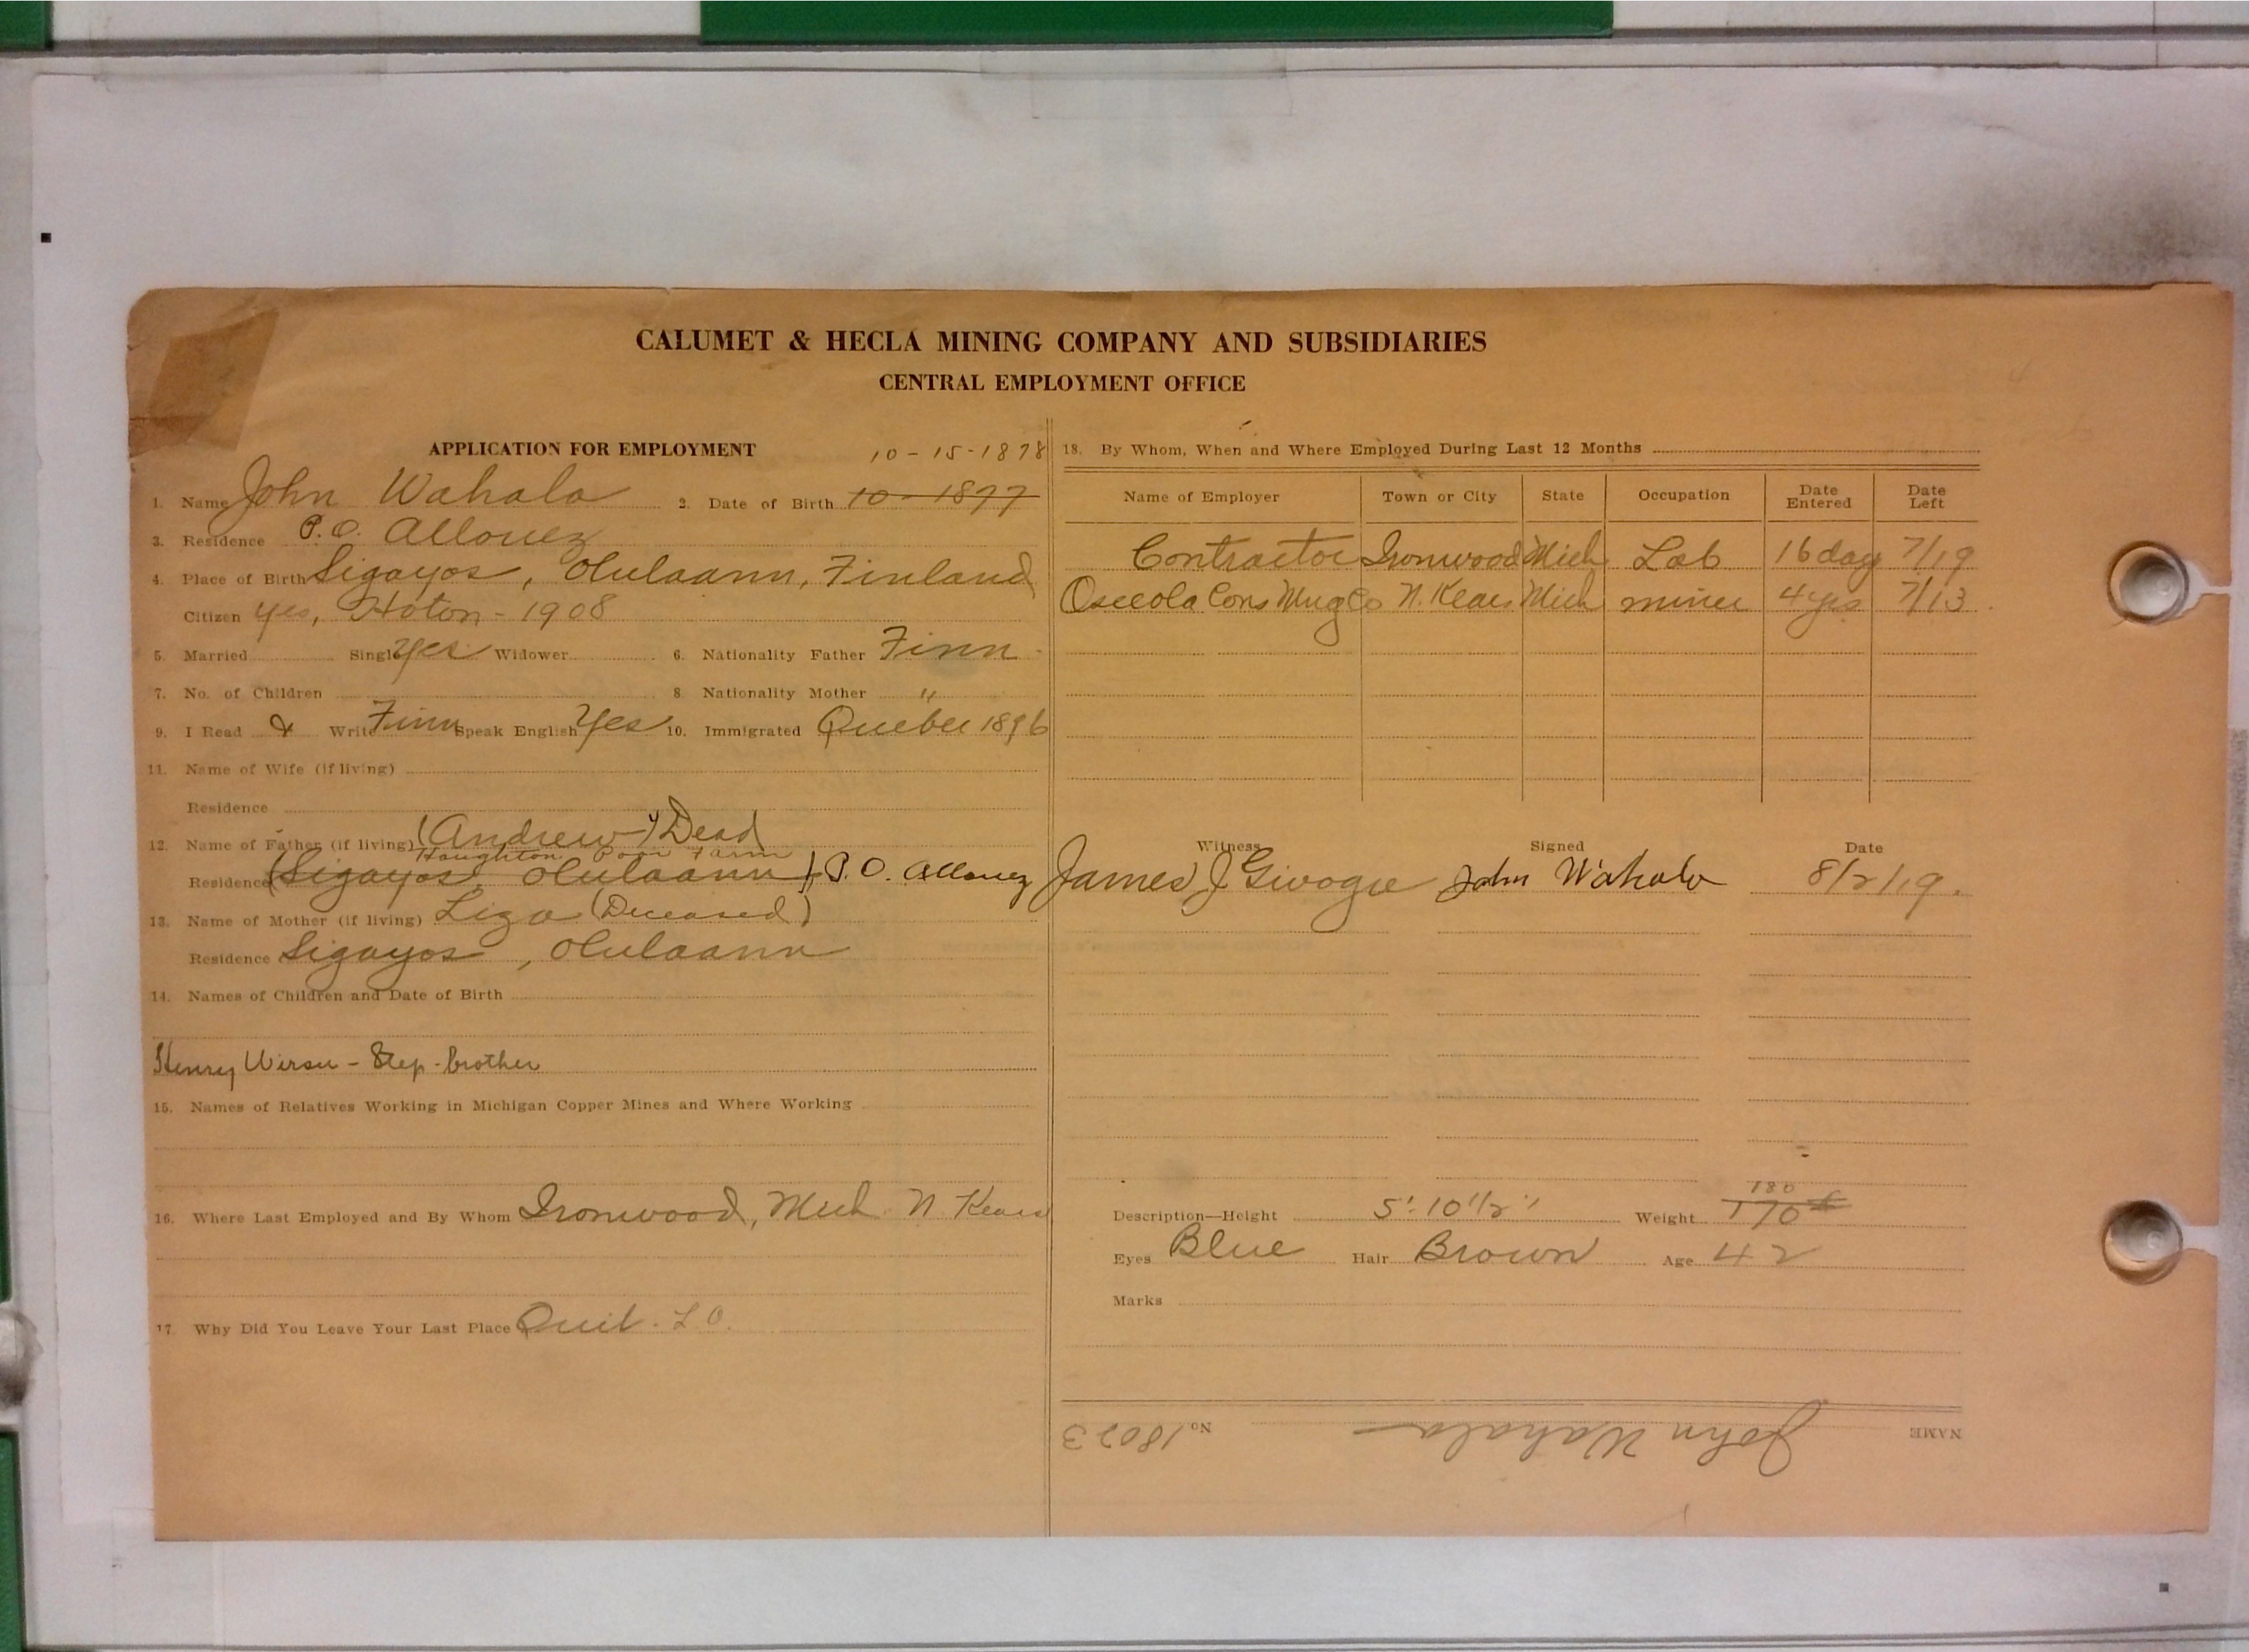 CALUMET & HECLA MINING COMPANY AND SUBSIDIARIES
CENTRAL EMPLOYMENT OFFICE
APPLICATION FOR EMPLOYMENT
10-15-1878
1. Name John Wahala 2. Date of Birth 10-1877
3. Residence P.O. Allouez
4. Place of Birth Sigayos, Olulaann, Finland
Citizen yes, Hoton - 1908
5. Married Single Yes Widower 6. Nationality Father Finn
7. No. of Children 8. Nationality Mother "
9. I Read & Write Finn Speak English Yes 10. Immigrated Quebec 1896
11. Name of Wife (if living)
Residence
12. Name of Father (if living) (Andrew) Dead
Houghton Poor Farm
Residence (Sigayos, Olulaann) P.O. Allouez
13. Name of Mother (if living) Liza (Deceased)
Residence Sigayos, Olulaann
14. Names of Children and Date of Birth
Henry - Step-brother
15. Names of Relatives Working in Michigan Copper Mines and Where Working
16. Where Last Employed and By Whom Ironwood, Mich. N Kears
17. Why Did You Leave Your Last Place Quit. L O.
18. By Whom, When and Where Employed During Last 12 Months
Name of Employer Town or City State Occupation Date Entered Date Left
Contractor Ironwood Mich Lab 16 days 7/19
Osceola Cons Mng Co N. Kears Mich miner 4 yrs 7/13
Witness Signed Date
James J John Wahala 8/2/19.
Description—Height 5' 10 1/2" Weight 170
180
Eyes Blue Hair Brown Age 42
Marks
NAME John Wahala No 18023